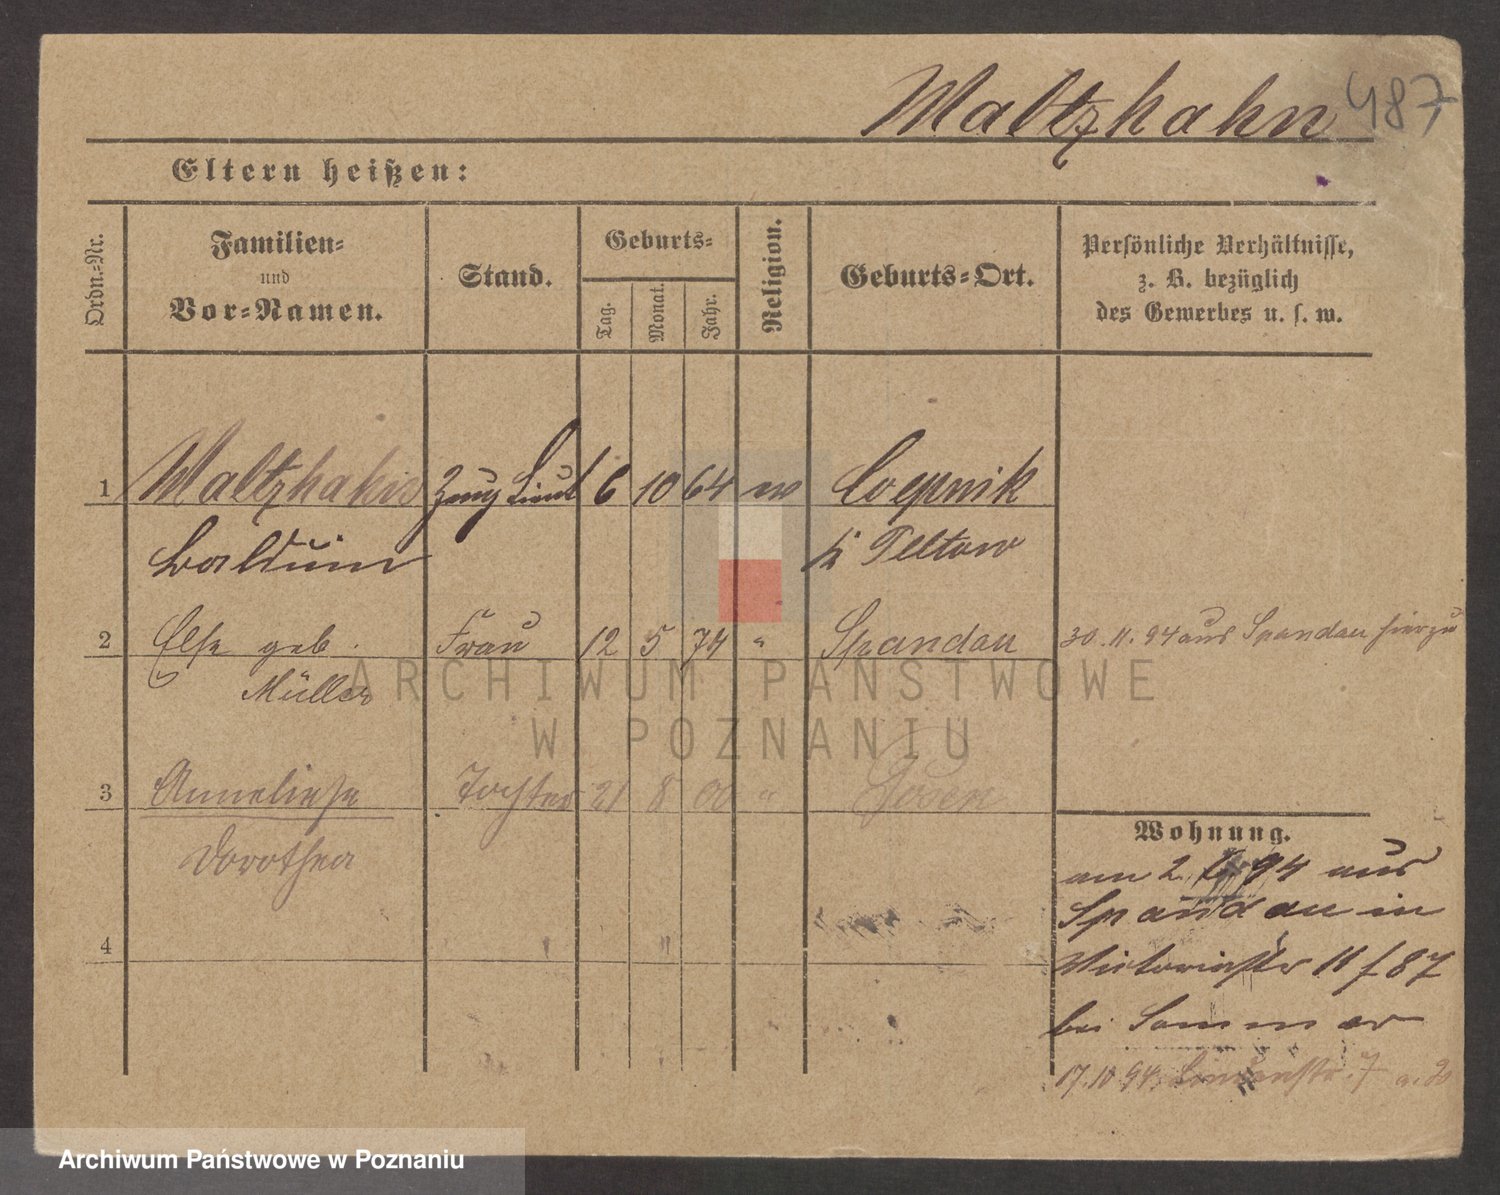 Maltzhahn 487
Eltern heißen:
Ordn.-Nr.
Familien-
und
Vor-Namen.
Stand.
Geburts-
Tag.
Monat.
Jahr.
Religion.
Geburts-Ort.
Persönliche Verhältnisse,
z. B. bezüglich
des Gewerbes u. s. w.
1 Zeug Lieut 6 10 64 Coepnik
Balduin Teltow
2 Else geb. Frau 12 5 74 " Spandau 30. 11. 94 aus Spandau hierzu
Müller
3 Anneliese Tochter 21 8 00 " Posen
Dorothea
4
Wohnung.
am 2. 94 aus
Spandau in
Victoriastr 11 f 87
bei Sommer
17. 10 94.
ARCHIWUM PAŃSTWOWE
W POZNANIU
Archiwum Państwowe w Poznaniu